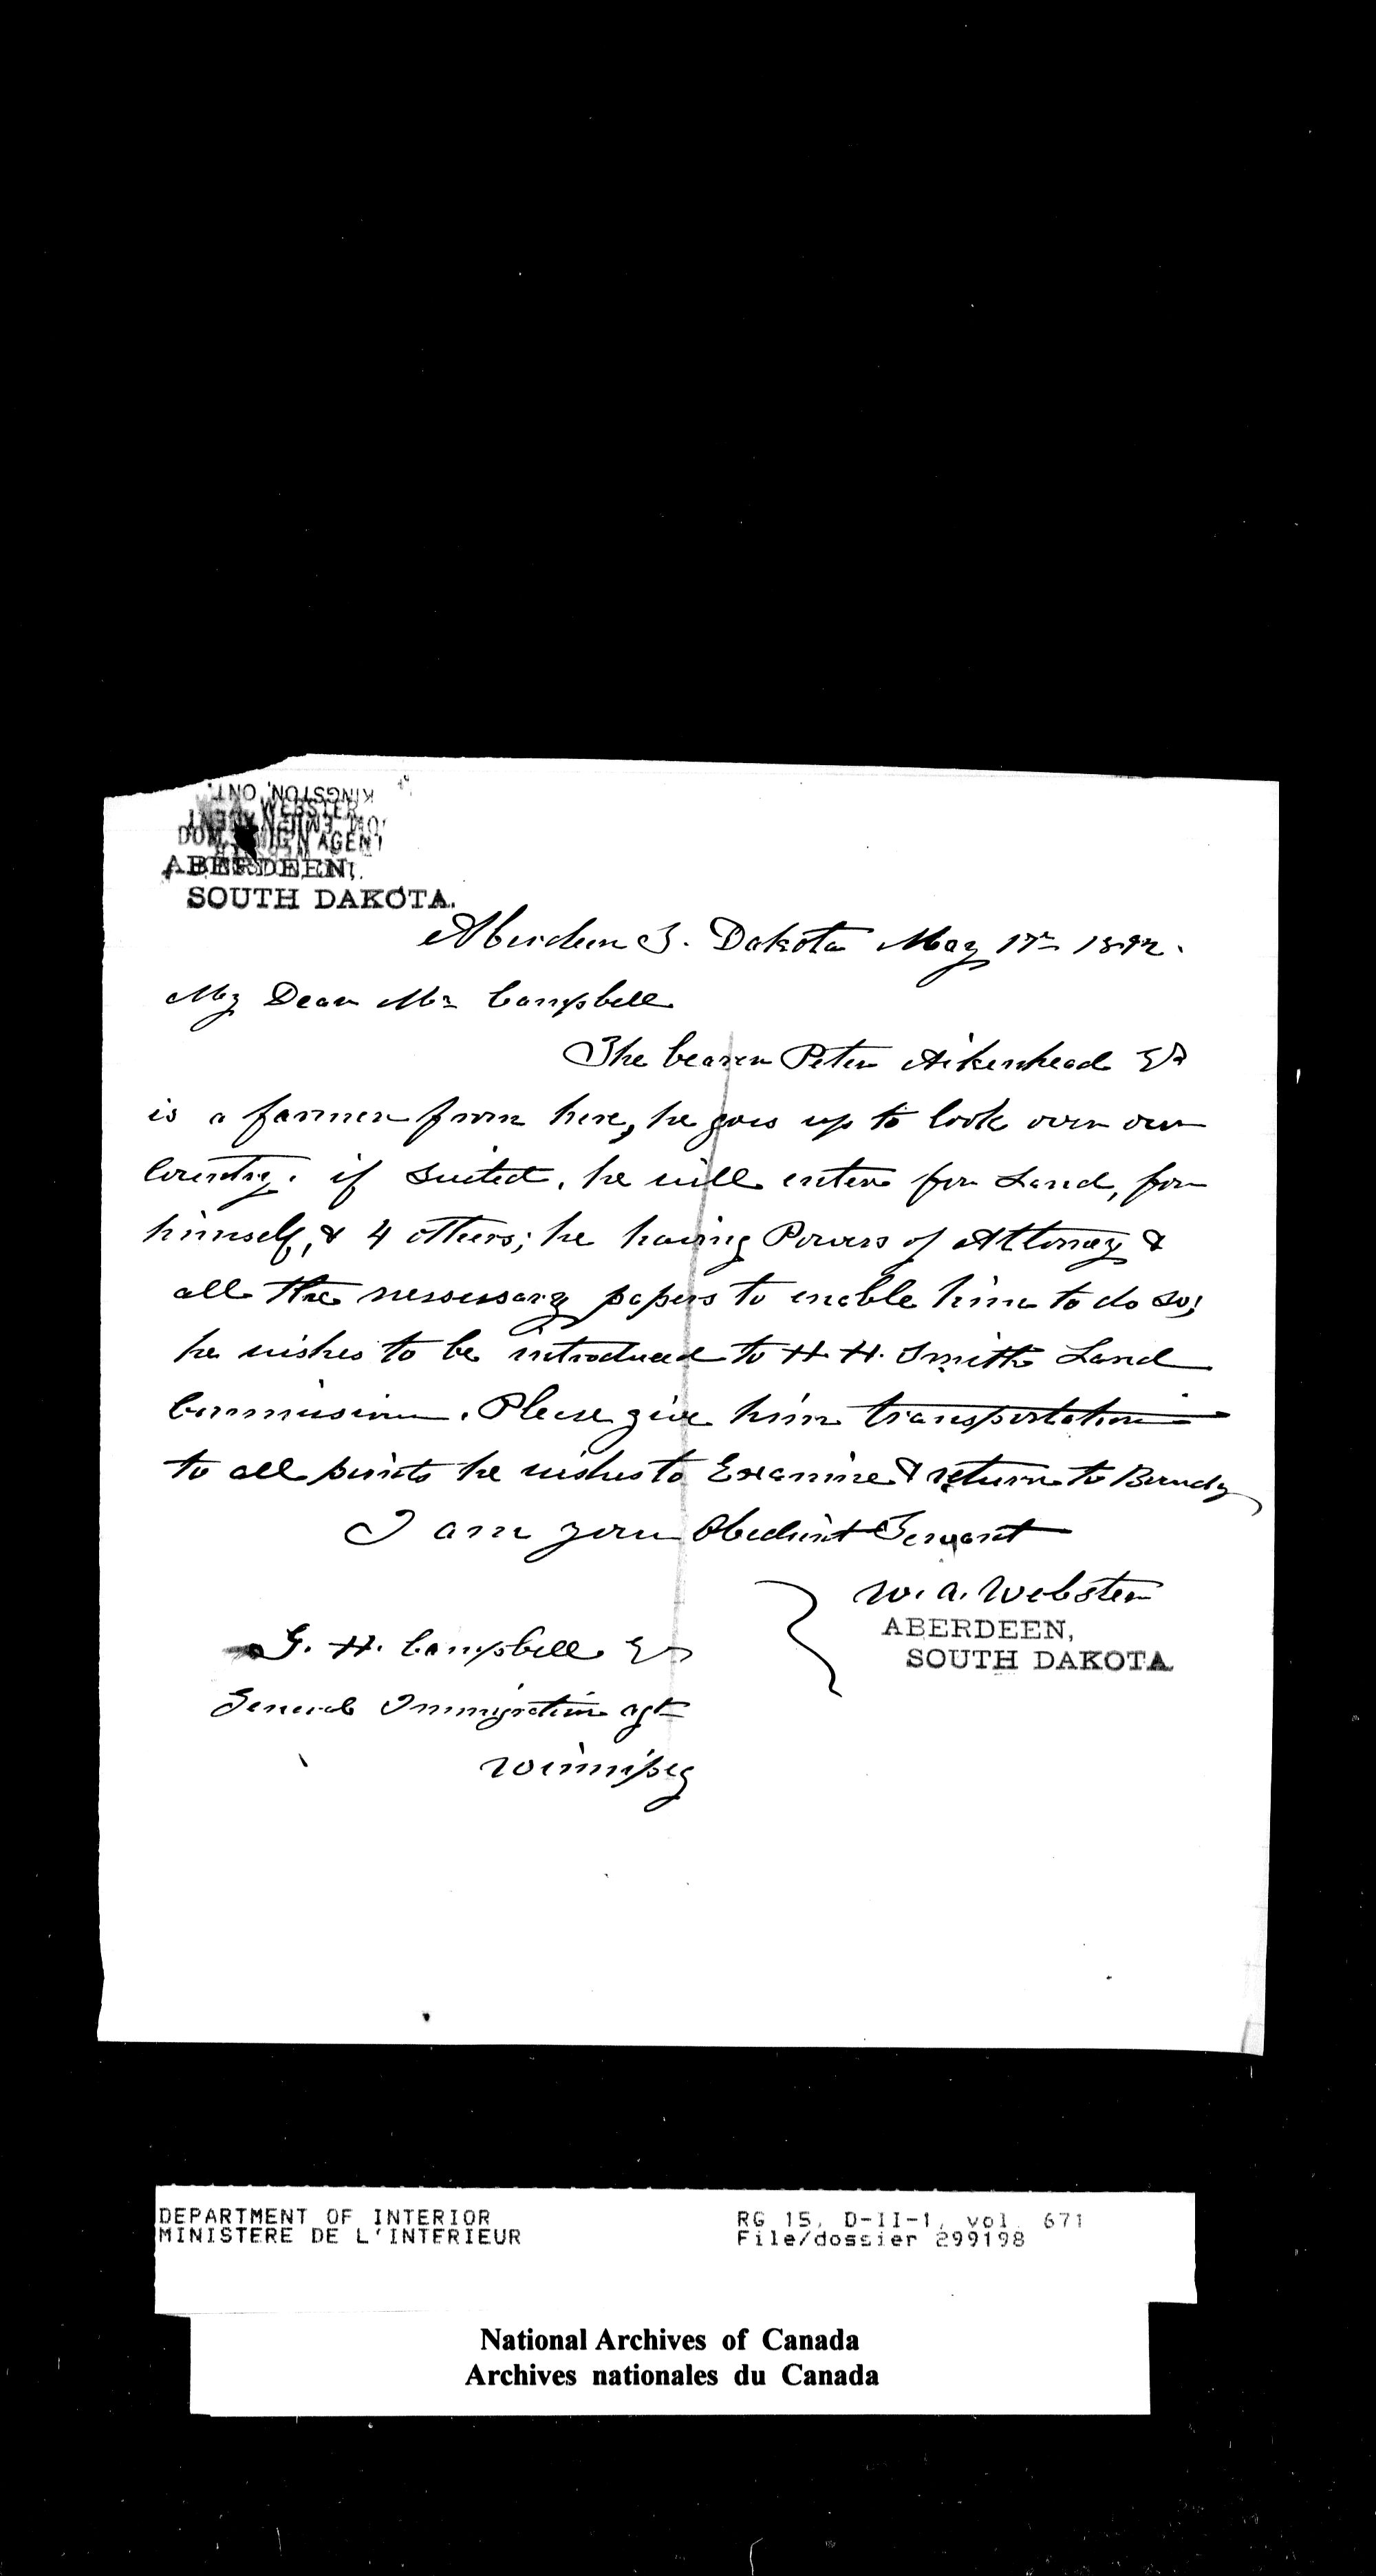 KINGSTON, ONT.
WEBSTER
AGENT
ABERDEEN,
SOUTH DAKOTA.
Aberdeen S. Dakota May 17th 1892.
My Dear Mr Campbell
The bearer Peter Aikenhead Esq
is a farmer from here, he goes up to look over our
Country. if suited, he will enter for Land, for
himself, & 4 others; he having Powers of Attorney &
all the nessessary papers to enable him to do so;
he wishes to be introduced to H. H. Smith Land
Commission. Please give him transportation
to all points he wishes to Examine & return to Boundry
I am your Obedient Servant
W. A. Webster
ABERDEEN,
SOUTH DAKOTA
G. H. Campbell Esq
General Immigration agt
Winnipeg
DEPARTMENT OF INTERIOR RG 15, D-II-1, vol. 671
MINISTERE DE L'INTERIEUR File/dossier 299198
National Archives of Canada
Archives nationales du Canada